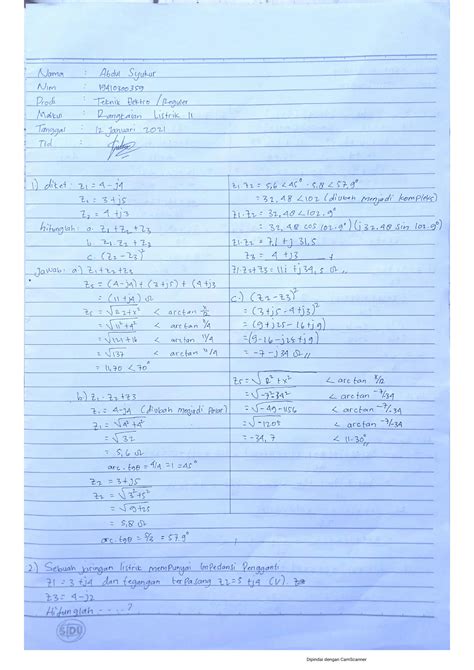 Nama : Abdul Syukur
Nim : 19410300359
Prodi : Teknik Elektro / Reguler
Matkul : Rangkaian Listrik II
Tanggal : 12 Januari 2021
Ttd :
1) diket : Z1 = 4 - j4
Z2 = 3 + j5
Z3 = 4 + j3
hitunglah : a. Z1 + Z2 + Z3
b. Z1 . Z2 + Z3
c. (Z2 - Z3)²
Jawab : a) Z1 + Z2 + Z3
Zs = (4 - j4) + (3 + j5) + (4 + j3
= (11 + j4) Ω
Zs = √R2 + x² < arctan x/R
= √11² + 4² < arctan 11/4
= √121 + 16 < arctan 11/4
= √137 < arctan 11/4
= 11,70 < 70°
b) Z1 . Z2 + Z3
Z1 = 4 - j4 (diubah menjadi Polar)
Z1 = √4² + 4²
= √32
= 5,6 Ω
arc. tg θ = 4/4 = 1 = 45°
Z2 = 3 + j5
Z2 = √3² + 5²
= √9 + 25
= 5,8 Ω
arc. tg θ = 5/3 = 57.9°
Z1.Z2 = 5,6 < 45° - 5,8 < 57,9°
= 32,48 < 102 (diubah menjadi kompleks)
Z1.Z2 = 32,48 < 102.9°
= 32,48 cos 102.9°) (j 32.48 sin 102.9°)
Z1.Z2 = 7,1 + j 31,5
Z3 = 4 + j3
Z1.Z2+Z3 = 11,1 + j34,5 Ω
c.) (Z2 - Z3)²
= (3 + j5 - 4 + j3)²
= (9 + j25 - 16 + j9)
= (9 - 16 - j25 + j9)
= -7 - j34 Ω
Zs = √R² + x² < arctan x/R
= √-7² 34² < arctan -7/34
= √-49 - 1156 < arctan -7/34
= √-1205 < arctan -7/34
= -34,7 < 11.30°
2) Sebuah jaringan listrik mempunyai Impedansi Pengganti
Z1 = 3 + j4 dan tegangan terpasang Z2 = 5 + j4 (V).
Z3 = 4 - j2
Hitunglah - - - - ?
SIDU
Dipindai dengan CamScanner